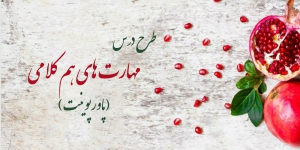 طرح درس
مهارت‌های هم کلامی
(پاورپوینت)